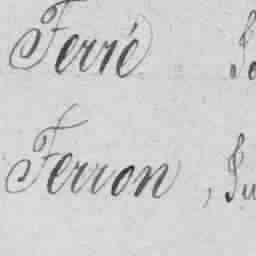 Ferré
Ferron,